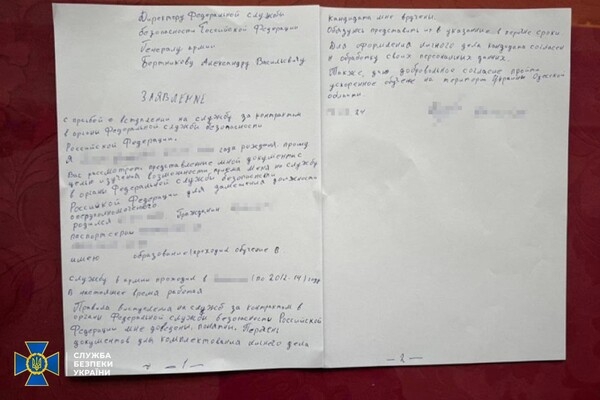 Директору Федеральной службы
безопасности Российской Федерации
Генералу армии
Бортникову Александру Васильевичу
ЗАЯВЛЕНИЕ
с просьбой о вступлении на службу за контрактом
в органы Федеральной службы безопасности
Российской Федерации.
Я года рождения, прошу
Вас рассмотреть представление мной документы с
целью изучения возможности приёма меня на службу
в органы Федеральной службы безопасности
Российской Федерации для замещения должности
оперуполномоченного
родился гражданин
паспорт серии
имею образование/проходил обучение в
службу в армии проходил в / по 2012-14/году
в настоящее время работая
Правила поступления на службу за контрактом в
органы Федеральной службы безопасности Российской
Федерации мне доведены, понятны. Перечень
документов для комплектования личного дела
- 1 -
кандидата мне вручены.
Обязуюсь представить их в указанные в перечне сроки
Для оформления личного дела кандидата согласен
к обработку своих персональных данных.
Также, даю добровольное согласие пройти
ускоренное обучение на территории Украины Одесской
области
24
- 2 -
СЛУЖБА
БЕЗПЕКИ
УКРАЇНИ